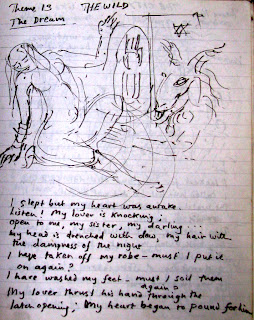 Theme 13 THE WILD
The Dream
I slept but my heart was awake.
Listen! My lover is knocking:
open to me, my sister, my darling...
My head is drenched with dew, my hair with
the dampness of the night
I have taken off my robe - must I put it
on again?
I have washed my feet - must I soil them
again?
My lover thrust his hand through the
latch opening; My heart began to pound for him